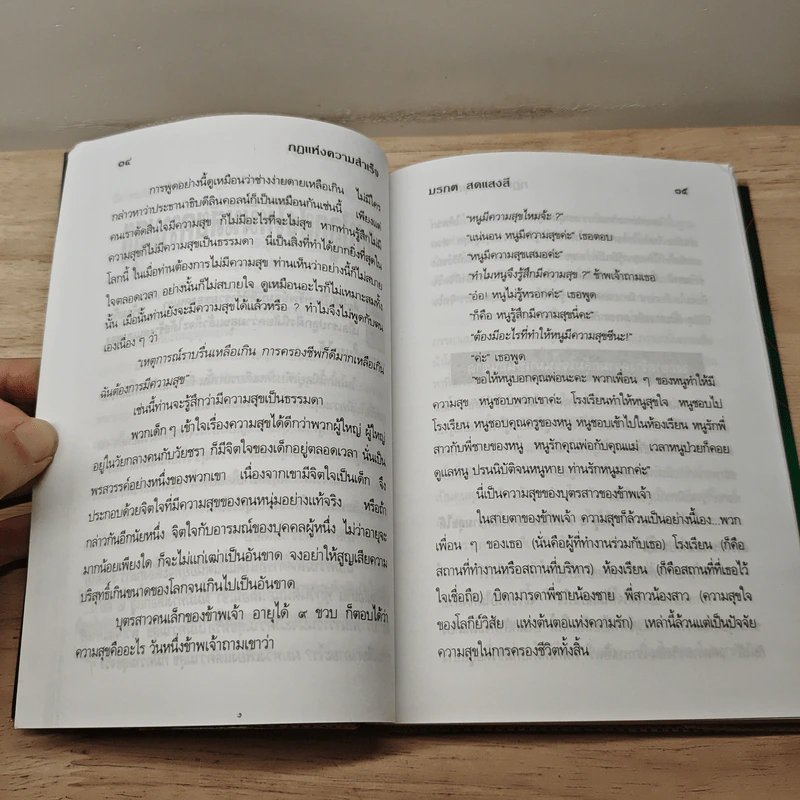 ๓๔ กฎแห่งความสำเร็จ
การพูดอย่างนี้ดูเหมือนว่าช่างง่ายดายเหลือเกิน ไม่มีใคร
กล่าวหาว่าประธานาธิบดีลินคอลน์ก็เป็นเหมือนกันเช่นนี้ เพียงแต่
คนเราตัดสินใจมีความสุข ก็ไม่มีอะไรที่จะไม่สุข หากท่านรู้สึกไม่มี
ความสุขก็ไม่มีความสุขเป็นธรรมดา นี่เป็นสิ่งที่ทำได้ยากยิ่งที่สุดใน
โลกนี้ ในเมื่อท่านต้องการไม่มีความสุข ท่านเห็นว่าอย่างนี้ก็ไม่สบาย
ใจตลอดเวลา อย่างนั้นก็ไม่สบายใจ ดูเหมือนอะไรก็ไม่เหมาะสมทั้ง
นั้น เมื่อนั้นท่านยังจะมีความสุขได้แล้วหรือ ? ทำไมจึงไม่พูดกับตน
เองเนื่อง ๆ ว่า
“เหตุการณ์ราบรื่นเหลือเกิน การครองชีพก็ดีมากเหลือเกิน
ฉันต้องการมีความสุข”
เช่นนี้ท่านจะรู้สึกว่ามีความสุขเป็นธรรมดา
พวกเด็ก ๆ เข้าใจเรื่องความสุขได้ดีกว่าพวกผู้ใหญ่ ผู้ใหญ่
อยู่ในวัยกลางคนกับวัยชรา ก็มีจิตใจของเด็กอยู่ตลอดเวลา นั่นเป็น
พรสวรรค์อย่างหนึ่งของพวกเขา เนื่องจากเขามีจิตใจเป็นเด็ก จึง
ประกอบด้วยจิตใจที่มีความสุขของคนหนุ่มอย่างแท้จริง หรือถ้า
กล่าวกันอีกนัยหนึ่ง จิตใจกับอารมณ์ของบุคคลผู้หนึ่ง ไม่ว่าอายุจะ
มากน้อยเพียงใด ก็จะไม่แก่เฒ่าเป็นอันขาด จงอย่าให้สูญเสียความ
บริสุทธิ์เกินขนาดของโลกจนเกินไปเป็นอันขาด
บุตรสาวคนเล็กของข้าพเจ้า อายุได้ ๙ ขวบ ก็ตอบได้ว่า
ความสุขคืออะไร วันหนึ่งข้าพเจ้าถามเขาว่า
มรกต สดแสงสี ๓๕
“หนูมีความสุขไหมจ๊ะ ?”
“แน่นอน หนูมีความสุขค่ะ” เธอตอบ
“หนูมีความสุขเสมอค่ะ”
“ทำไมหนูจึงรู้สึกมีความสุข ?” ข้าพเจ้าถามเธอ
“อ๋อ! หนูไม่รู้หรอกค่ะ” เธอพูด
“ก็คือ หนูรู้สึกมีความสุขนี่คะ”
“ต้องมีอะไรที่ทำให้หนูมีความสุขซีนะ!”
“ค่ะ” เธอพูด
“ขอให้หนูบอกคุณพ่อนะคะ พวกเพื่อน ๆ ของหนูทำให้มี
ความสุข หนูชอบพวกเขาค่ะ โรงเรียนทำให้หนูสุขใจ หนูชอบไป
โรงเรียน หนูชอบคุณครูของหนู หนูชอบเข้าไปในห้องเรียน หนูรักพี่
สาวกับพี่ชายของหนู หนูรักคุณพ่อกับคุณแม่ เวลาหนูป่วยก็คอย
ดูแลหนู ปรนนิบัติจนหนูหาย ท่านรักหนูมากค่ะ”
นี่เป็นความสุขของบุตรสาวของข้าพเจ้า
ในสายตาของข้าพเจ้า ความสุขก็ล้วนเป็นอย่างนี้เอง...พวก
เพื่อน ๆ ของเธอ (นั่นคือผู้ที่ทำงานร่วมกับเธอ) โรงเรียน (ก็คือ
สถานที่ทำงานหรือสถานที่บริหาร) ห้องเรียน (ก็คือสถานที่ที่เธอไว้
ใจเชื่อถือ) บิดามารดาพี่ชายน้องชาย พี่สาวน้องสาว (ความสุขใจ
ของโลกีย์วิสัย แห่งต้นตอแห่งความรัก) เหล่านี้ล้วนแต่เป็นปัจจัย
ความสุขในการครองชีวิตทั้งสิ้น